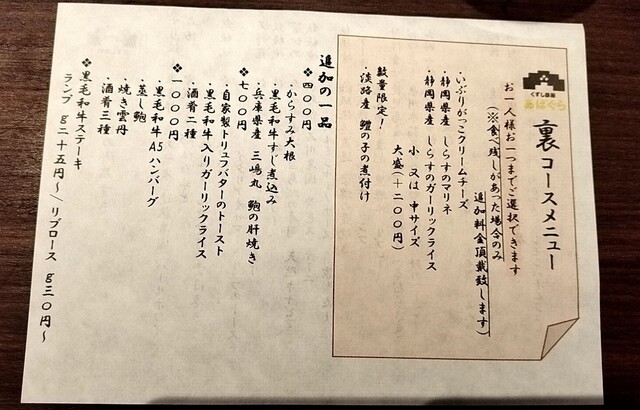 くずし割烹
あほぐら
裏コースメニュー
お一人様お一つまでご選択できます
(※食べ残しがあった場合のみ
追加料金頂戴致します)
・いぶりがっこクリームチーズ
・静岡県産 しらすのマリネ
・静岡県産 しらすのガーリックライス
小 又は 中サイズ
大盛(+二〇〇円)
数量限定!
・淡路産 鱧の子の煮付け
追加の一品
❖四〇〇円
・からすみ大根
・黒毛和牛すじ煮込み
・兵庫県産 三嶋丸 鮑の肝焼き
❖七〇〇円
・自家製トリュフバターのトースト
・黒毛和牛入りガーリックライス
・酒肴二種
❖一〇〇〇円
・黒毛和牛A5ハンバーグ
・蒸し鮑
・焼き雲丹
・酒肴三種
❖黒毛和牛ステーキ
ランプ g二十五円~/リブロース g三〇円~